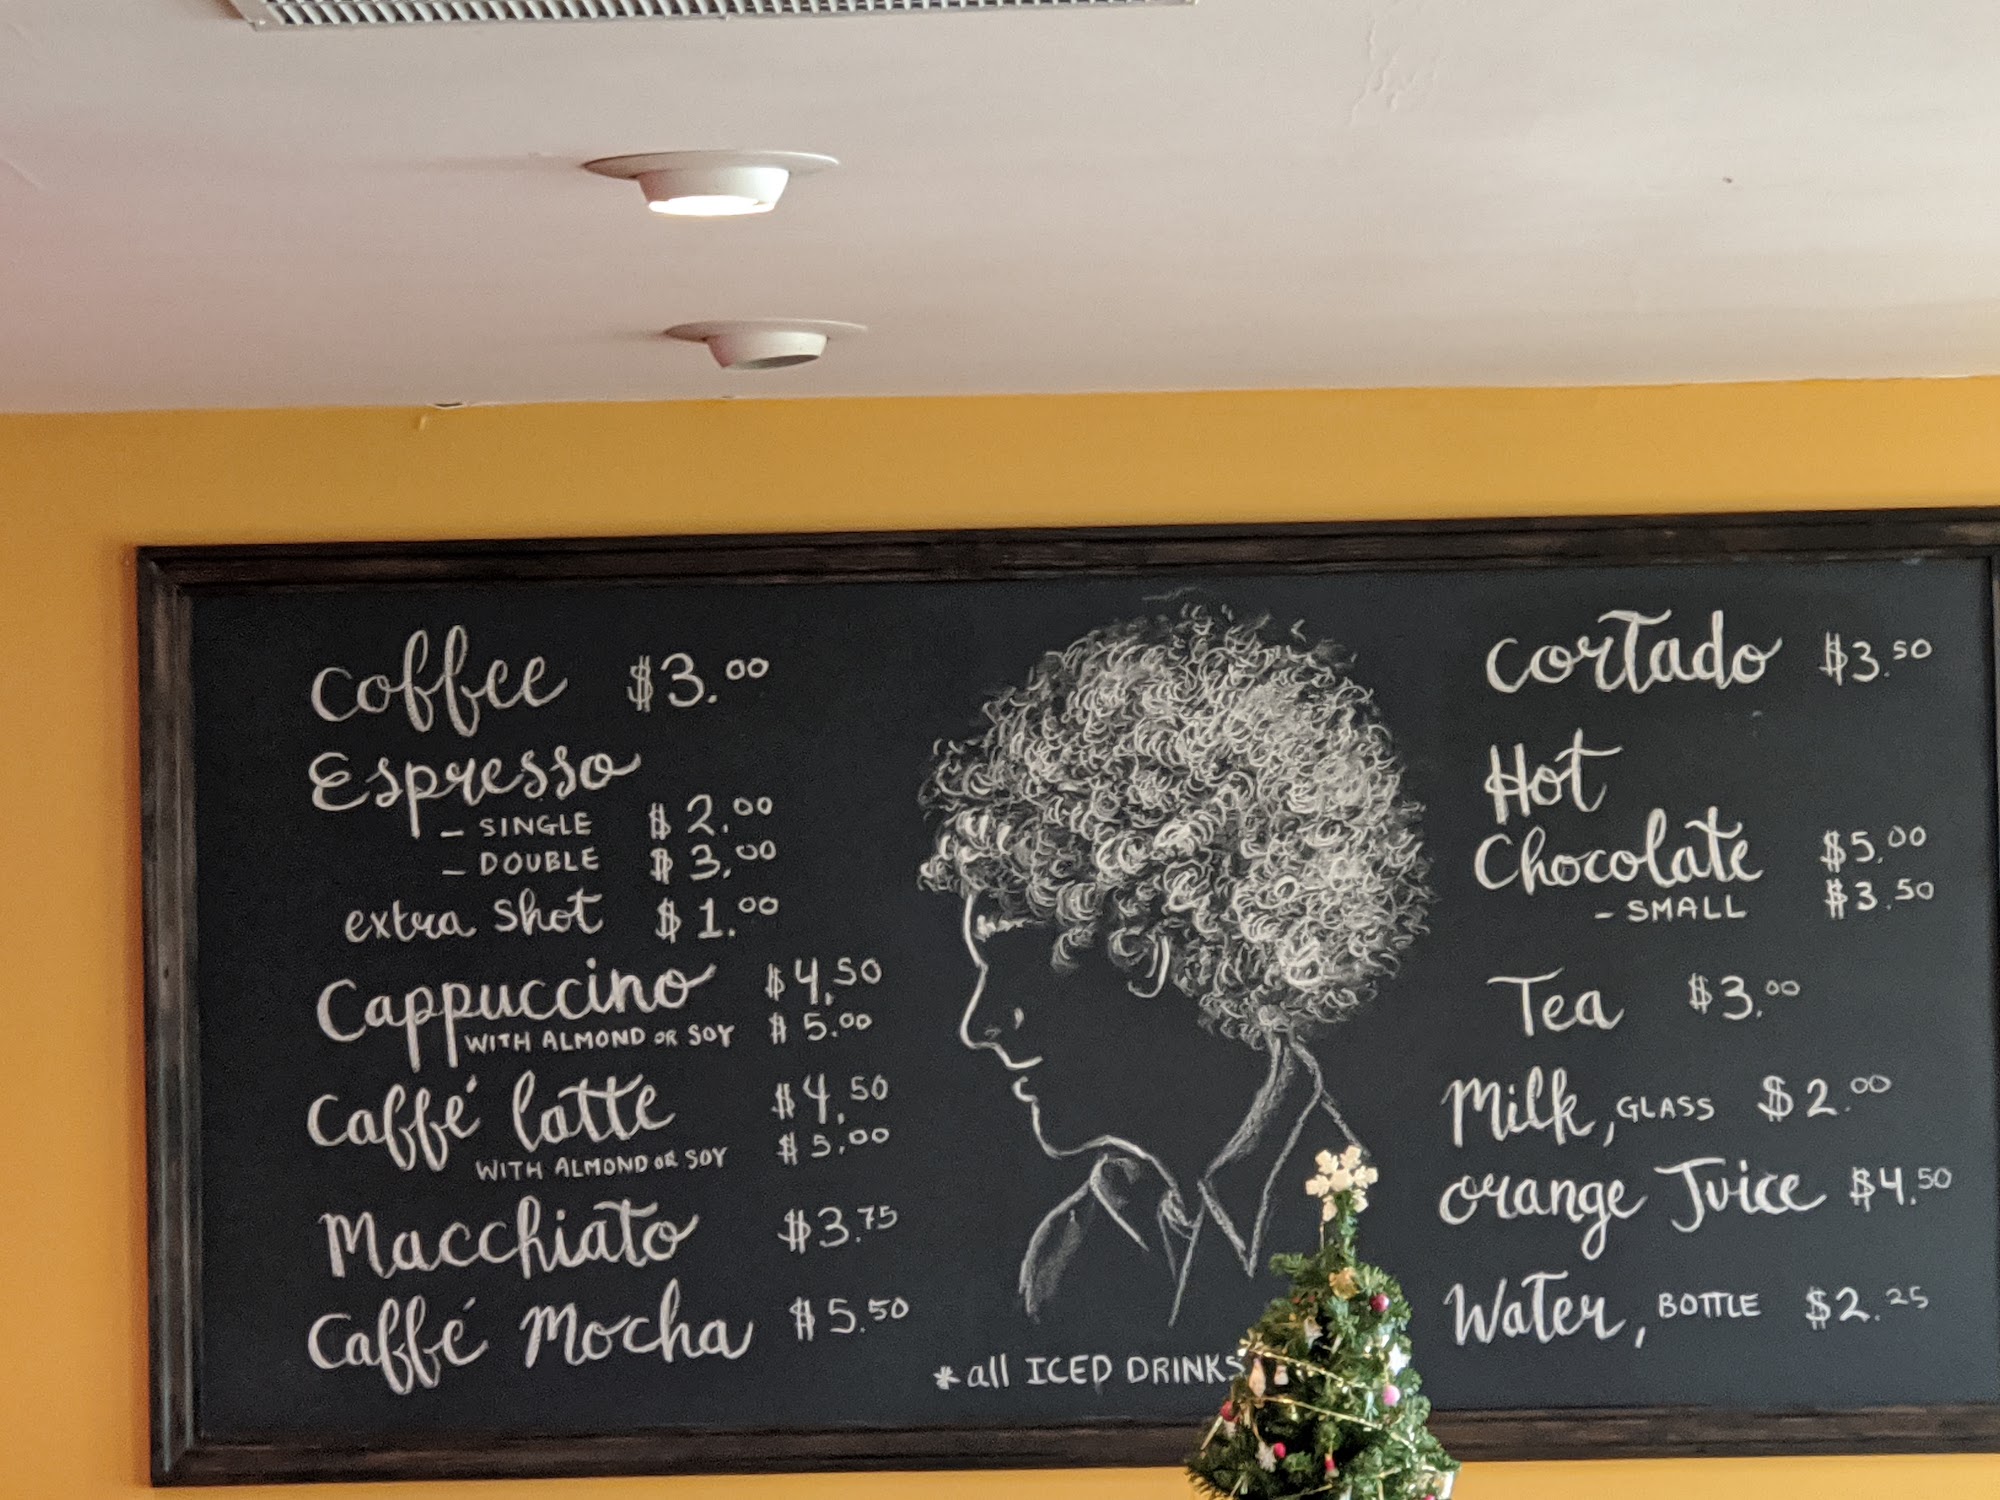 Coffee $3.00
Espresso
- SINGLE $2.00
- DOUBLE $3.00
extra shot $1.00
Cappuccino $4.50
WITH ALMOND OR SOY $5.00
Caffé latte $4.50
WITH ALMOND OR SOY $5.00
Macchiato $3.75
Caffé Mocha $5.50
*all ICED DRINKS
Cortado $3.50
Hot
Chocolate $5.00
- SMALL $3.50
Tea $3.00
Milk, GLASS $2.00
orange Juice $4.50
Water, BOTTLE $2.25